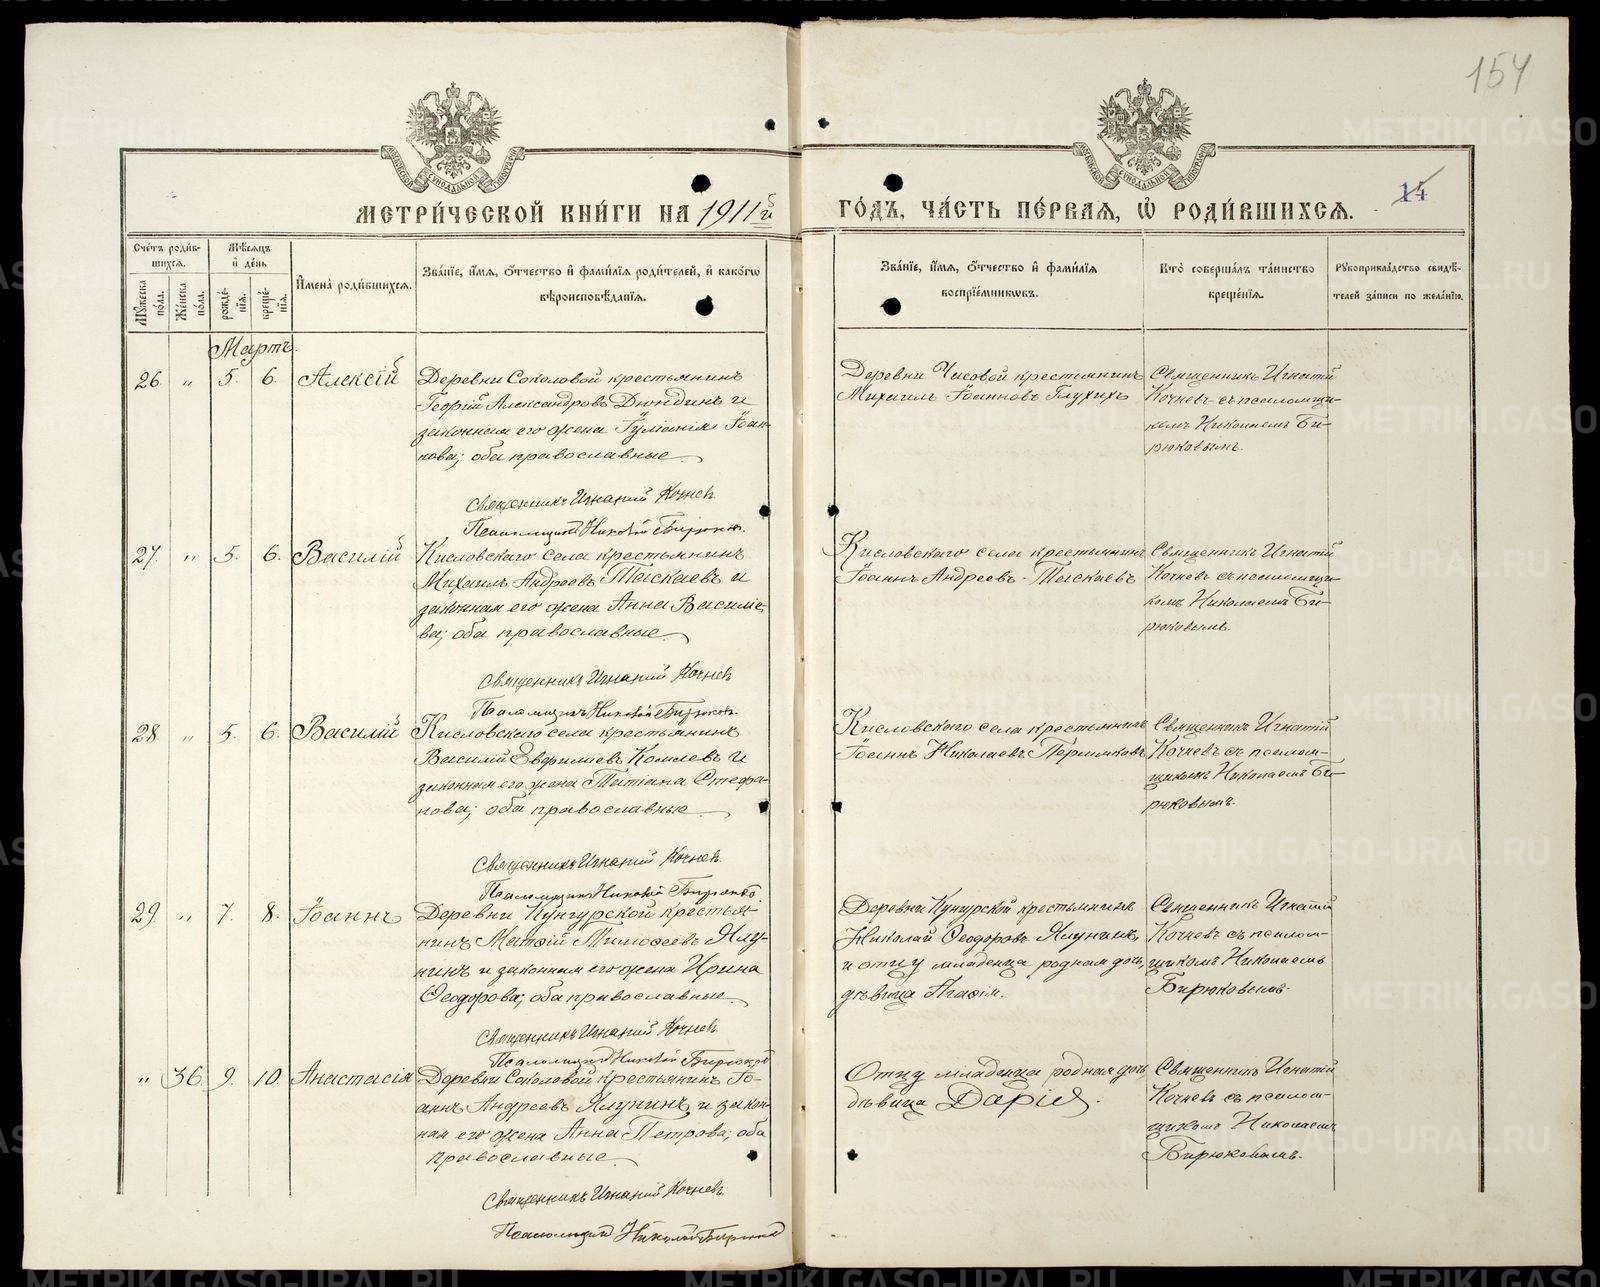 154
МЕТРИ́ЧЕСКОЙ КНИ́ГИ НА 1911й
ГО́ДЪ, ЧА́СТЬ ПЕ́РВАЯ, Ѡ РОДИ́ВШИХСЯ.
14
Сче́тъ роди́в-
шихся.
Му́жеска по́ла.
Же́нска по́ла.
Мѣ́сяцъ
и де́нь
рожде́нїя.
креще́нїя.
Имена̀ роди́вшихся.
Зва́нїе, и́мя, о́тчество и фами́лїя роди́телей, и како́гѡ
вѣроисповѣ́данїя.
Зва́нїе, и́мя, о́тчество и фами́лїя
воспрїе́мникѡвъ.
Кто̀ соверша́лъ та́инство
креще́нїя.
Рукоприкла́дство свидѣ́-
телей за́писи по жела́нїю.
Мартъ.
26. „ 5. 6. Алексій
Деревни Соколовой крестьянинъ
Георгій Александровъ Дюндинъ и
законная его жена Іуліанія Іоан-
нова; оба православные
Священникъ Игнатій Кочневъ
Псаломщикъ Николай Бирюковъ.
Деревни Часовой крестьянинъ
Михаилъ Іоанновъ Глухихъ
Священникъ Игнатій
Кочневъ съ псаломщи-
комъ Николаемъ Би-
рюковымъ.
27. „ 5. 6. Василій
Кисловскаго села крестьянинъ
Михаилъ Андреевъ Таскаевъ и
законная его жена Анна Василіе-
ва; оба православные
Священникъ Игнатій Кочневъ
Псаломщикъ Николай Бирюковъ.
Кисловскаго села крестьянинъ
Іоаннъ Андреевъ Таскаевъ
Священникъ Игнатій
Кочневъ съ псаломщи-
комъ Николаемъ Би-
рюковымъ.
28 „ 5. 6. Василій
Кисловскаго села крестьянинъ
Василій Евфиміевъ Комлевъ и
законная его жена Татіана Стефа-
нова; оба православные
Священникъ Игнатій Кочневъ
Псаломщикъ Николай Бирюковъ
Кисловскаго села крестьянинъ
Іоаннъ Николаевъ
Священникъ Игнатій
Кочневъ съ псалом-
щикомъ Николаемъ Би-
рюковымъ.
29. „ 7. 8. Іоаннъ
Деревни Кунгурской крестья-
нинъ Матѳій Тимоѳеевъ Ялу-
нинъ и законная его жена Ирина
Ѳеодорова; оба православные
Священникъ Игнатій Кочневъ
Псаломщикъ Николай Бирюковъ
Деревни Кунгурской крестьянинъ
Николай Ѳеодоровъ Ялунинъ,
и отцу младенца родная дочь,
дѣвица Агаѳія.
Священникъ Игнатій
Кочневъ съ псалом-
щикомъ Николаемъ
Бирюковымъ.
„ 36 9. 10. Анастасія
Деревни Соколовой крестьянинъ Іо-
аннъ Андреевъ Ялунинъ и закон-
ная его жена Анна Петрова; оба
православные
Священникъ Игнатій Кочневъ
Псаломщикъ Николай Бирюковъ
Отцу младенца родная дочь,
дѣвица Дарія.
Священникъ Игнатій
Кочневъ съ псалом-
щикомъ Николаемъ
Бирюковымъ.
METRIKI.GASO-URAL.RU